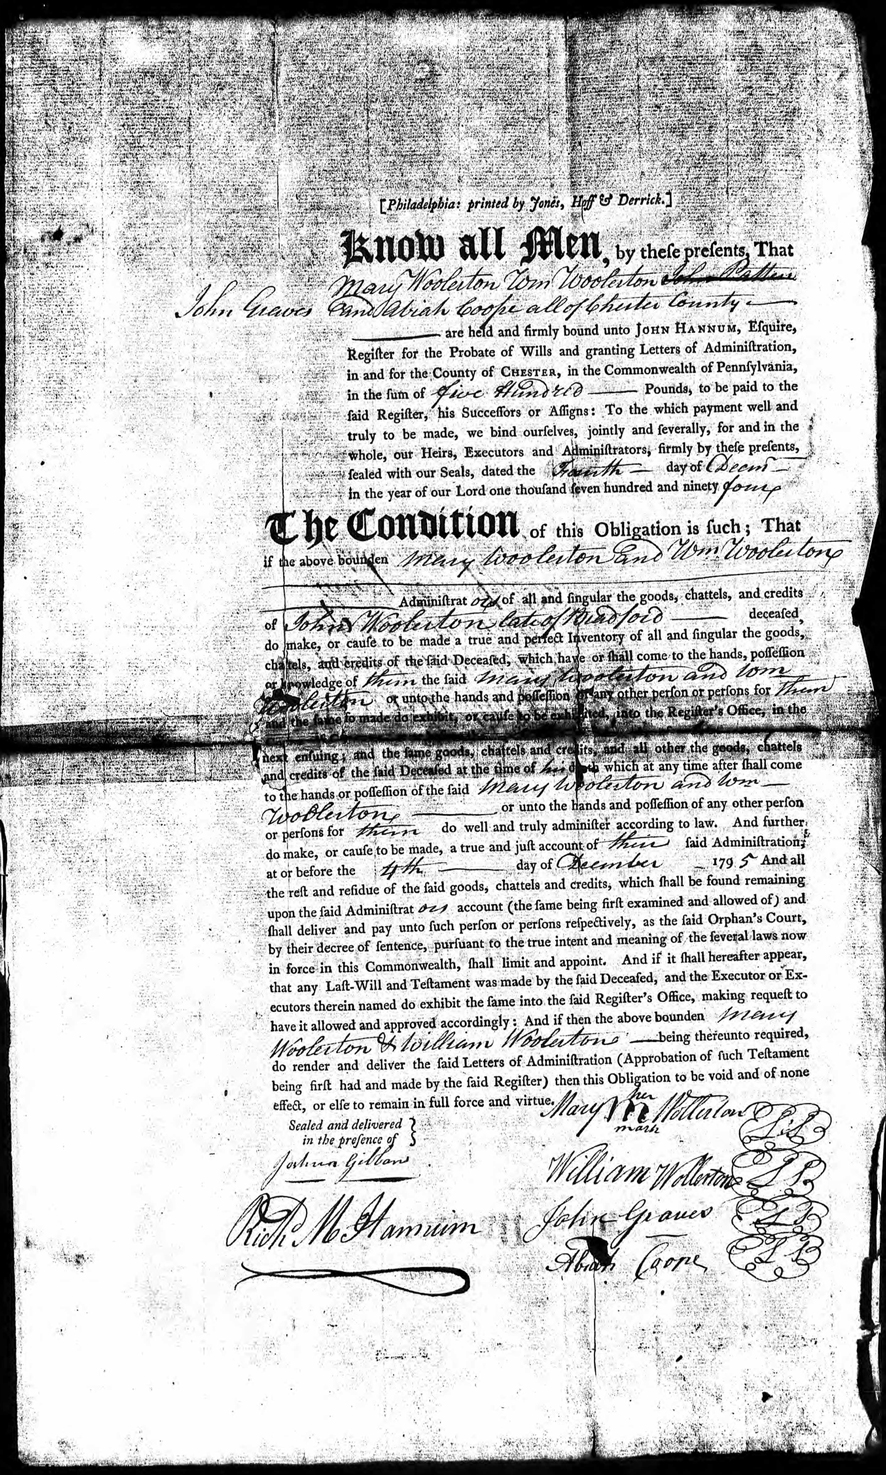 [Philadelphia: printed by Jones, Hoff & Derrick.]
Know all Men, by theſe preſents, That
Mary Woolerton Wm Woolerton John Patten
John Graves and Abiah Coope all of Cheſter County
are held and firmly bound unto JOHN HANNUM, Eſquire,
Regiſter for the Probate of Wills and granting Letters of Adminiſtration,
in and for the County of CHESTER, in the Commonwealth of Pennſylvania,
in the ſum of five Hundred Pounds, to be paid to the
ſaid Regiſter, his Succeſſors or Aſſigns: To the which payment well and
truly to be made, we bind ourſelves, jointly and ſeverally, for and in the
whole, our Heirs, Executors and Adminiſtrators, firmly by theſe preſents,
ſealed with our Seals, dated the Fourth day of Decm
in the year of our Lord one thouſand ſeven hundred and ninety four
The Condition of this Obligation is ſuch; That
if the above bounden Mary Woolerton and Wm. Woolerton
Adminiſtrators of all and ſingular the goods, chattels, and credits
of John Woolerton late of Bradford deceaſed,
do make, or cauſe to be made a true and perfect Inventory of all and ſingular the goods,
chattels, and credits of the ſaid Deceaſed, which have or ſhall come to the hands, poſſeſſion
or knowledge of them the ſaid Mary Woolerton and Wm
Woolerton or unto the hands and poſſeſſion of any other perſon or perſons for them
and the ſame ſo made do exhibit, or cauſe to be exhibited, into the Regiſter's Office, in the
next enſuing; and the ſame goods, chattels and credits, and all other the goods, chattels
and credits of the ſaid Deceaſed at the time of his death which at any time after ſhall come
to the hands or poſſeſſion of the ſaid Mary Woolerton and Wm
Woolerton or unto the hands and poſſeſſion of any other perſon
or perſons for them do well and truly adminiſter according to law. And further,
do make, or cauſe to be made, a true and juſt account of their ſaid Adminiſtration,
at or before the 4th day of December 1795 And all
the reſt and reſidue of the ſaid goods, chattels and credits, which ſhall be found remaining
upon the ſaid Adminiſtrators account (the ſame being firſt examined and allowed of) and
ſhall deliver and pay unto ſuch perſon or perſons reſpectively, as the ſaid Orphan's Court,
by their decree of ſentence, purſuant to the true intent and meaning of the ſeveral laws now
in force in this Commonwealth, ſhall limit and appoint. And if it ſhall hereafter appear,
that any Laſt-Will and Teſtament was made by the ſaid Deceaſed, and the Executor or Ex-
ecutors therein named do exhibit the ſame into the ſaid Regiſter's Office, making requeſt to
have it allowed and approved accordingly: And if then the above bounden Mary
Woolerton & William Woolerton being thereunto required,
do render and deliver the ſaid Letters of Adminiſtration (Approbation of ſuch Teſtament
being firſt had and made by the ſaid Regiſter) then this Obligation to be void and of none
effect, or elſe to remain in full force and virtue.
Sealed and delivered
in the preſence of
Joshua Gibbons
Richd M Hannum
her
Mary M Wollerton LS
mark
William Wollerton LS
John Graves LS
Abiah Coope LS